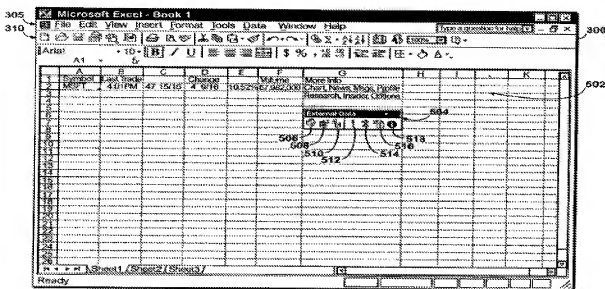 Microsoft Excel - Book 1
305
File Edit View Insert Format Tools Data Window Help
Type a question for help
310
306
100%
Arial 10 B I U $ % ,
A1 fx
A B C D E F G H I J K
Symbol Last Trade Change Volume More Info
MSFT 4:01PM 47 15/16 4 9/16 10.52% 57,982,000 Chart, News, Msgs, Profile
Research, Insider, Options
502
External Data
504
506
508
510
512
514
516
518
Sheet1 / Sheet2 / Sheet3 /
Ready